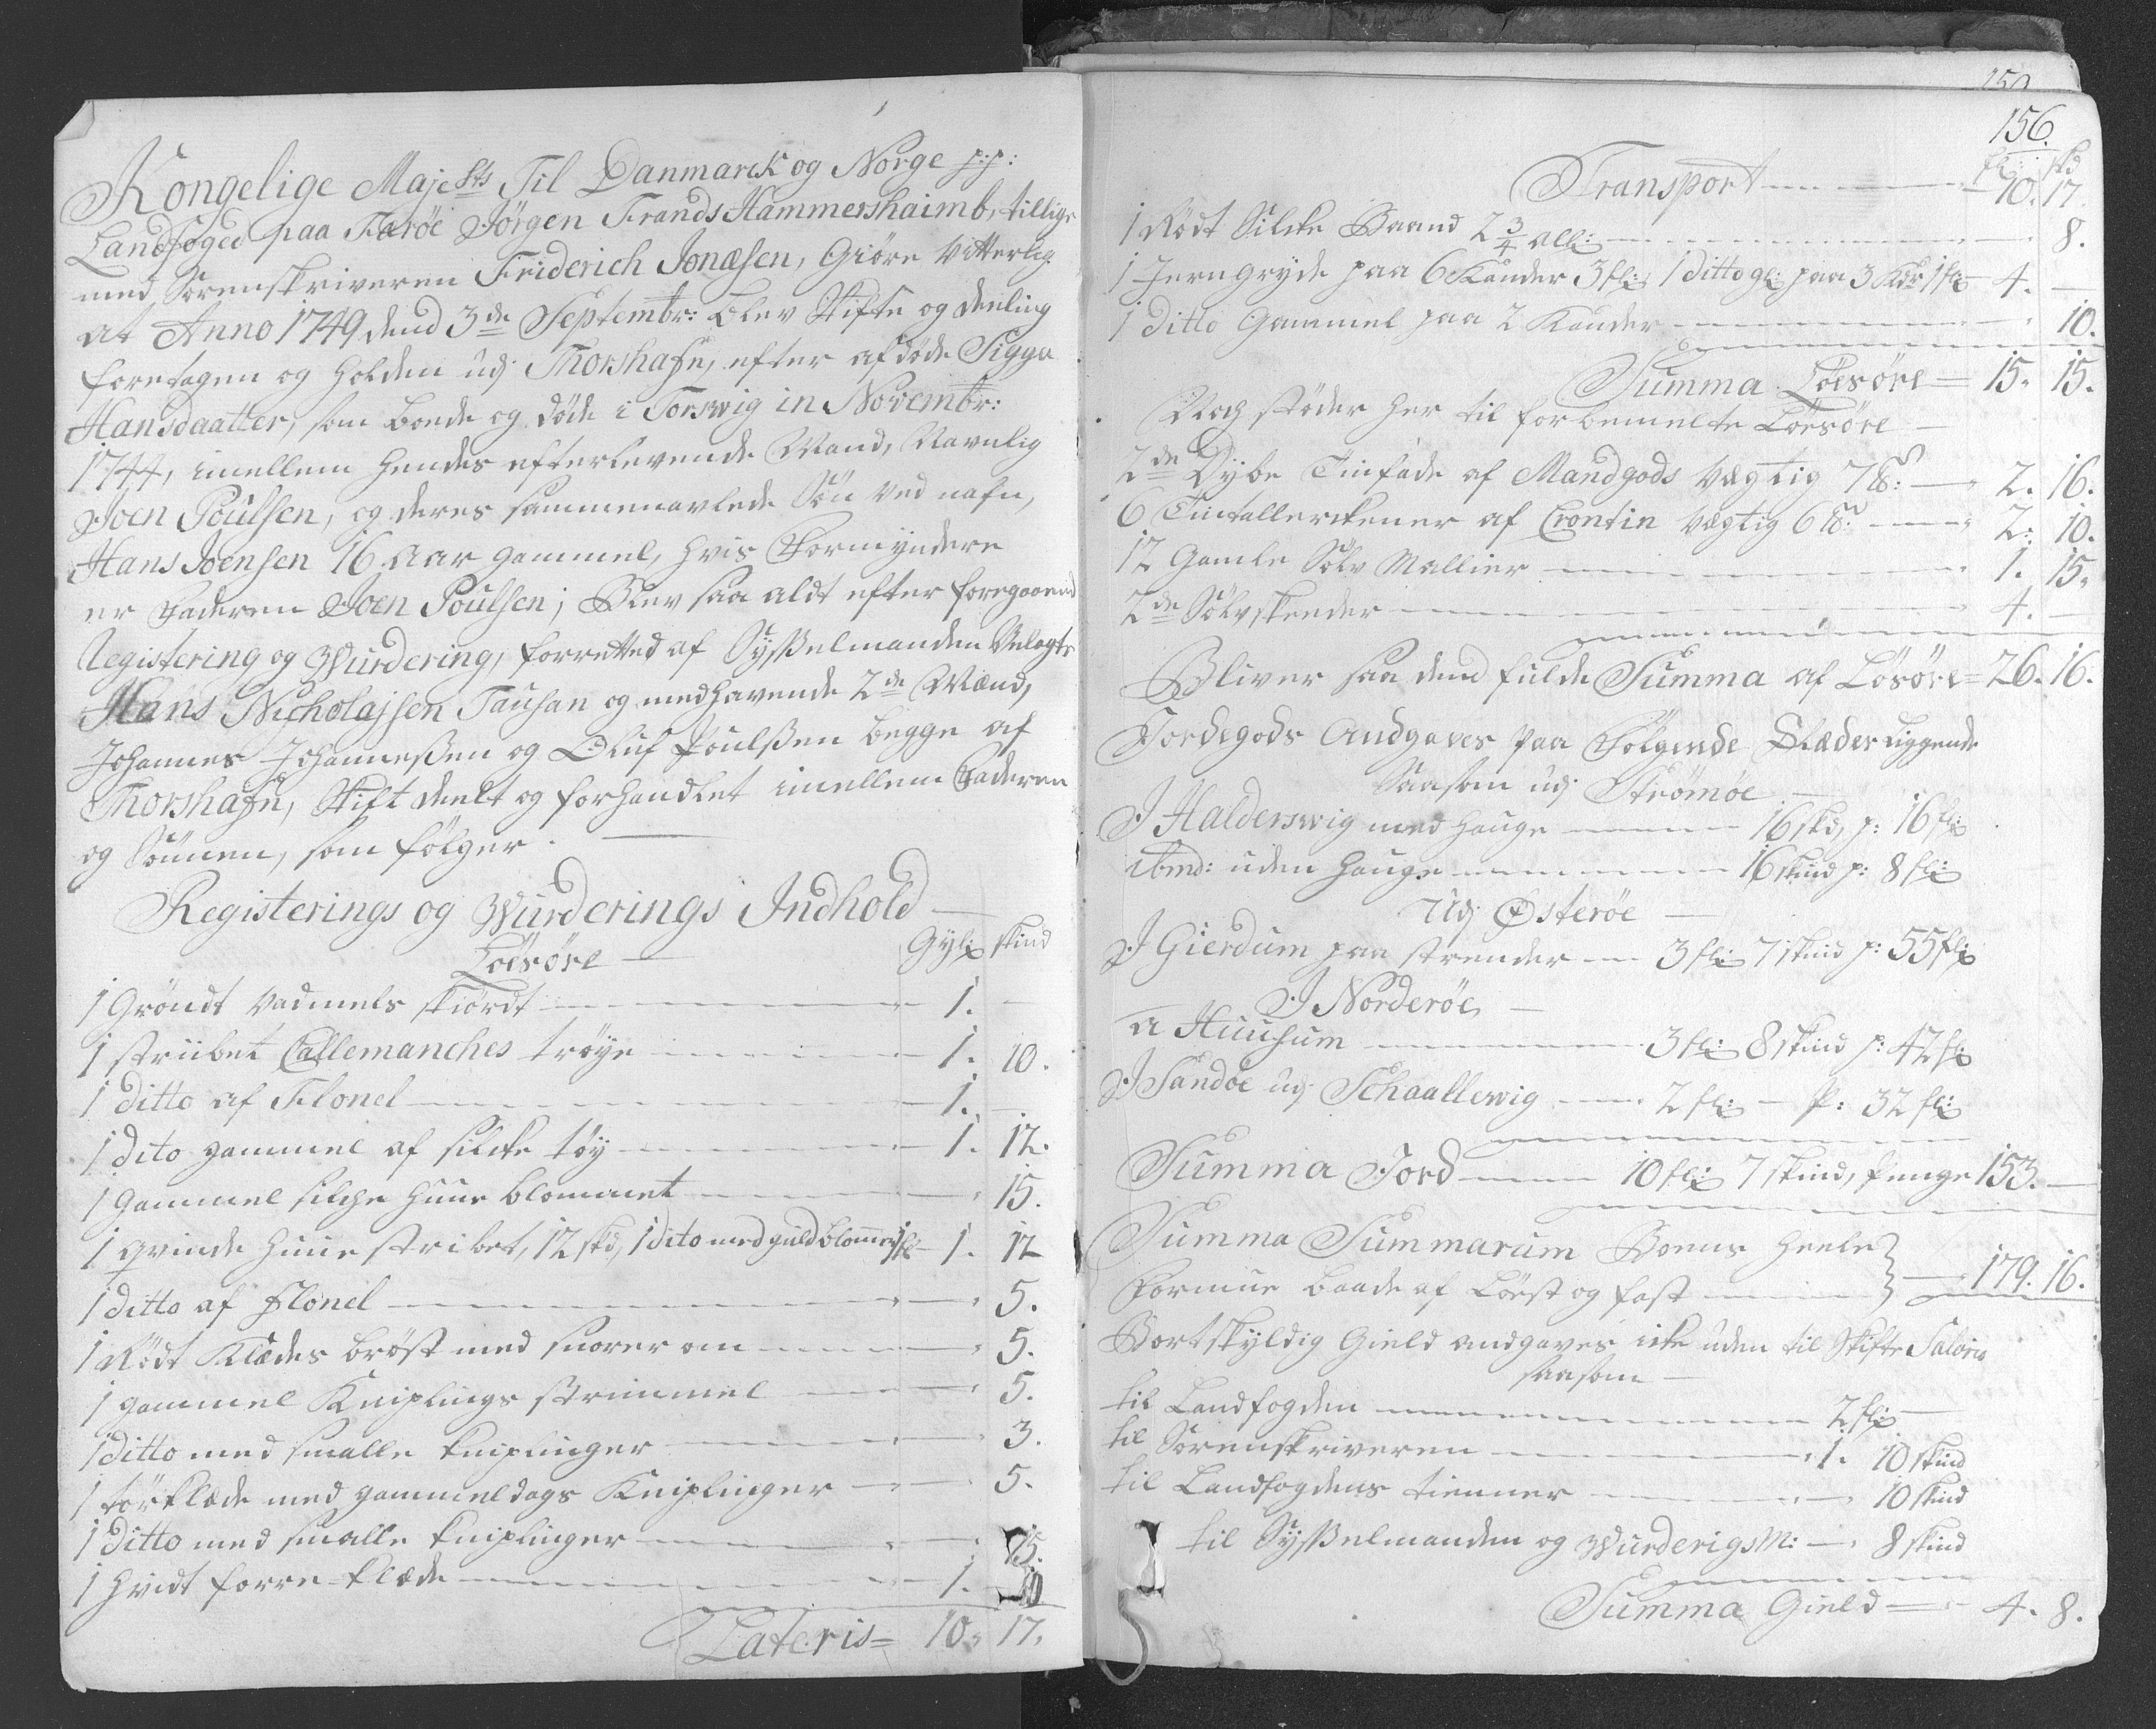 Kongelige Majesᵗˢ Til Danmarck og Norge p:p:
Landfoged paa Færöe Jörgen Frands Hammershaimb, tillige
med Sorenskriveren Friderich Jonæsen, Giöre Vitterlig
at Anno 1749 dend 3de Septembr: blev Skifte og deeling
foretagen og holden udj Thorshafn, efter afdöde Sigga
Hansdaatter, som boede og döde i Torswig in Novembr:
1744, imellem hendes efterlevende Mand, Navnlig
Joen Poulsen, og deres sammenavlede Sön ved nafn,
Hans Joensen 16 Aar gammel, hvis Formyndere
er Faderen Joen Poulsen; Blev saa aldt efter foregaaend
Registering og Wurdering, forretted af Sysselmanden Velagte
Hans Nicholajsen Tausan og medhavende 2de Mænd,
Johannes Johannessen og Oluf Poulssen begge af
Thorshafn, Skift deelt og forhandlet imellem Faderen
og Sönnen, som fölger.
Registerings og Wurderings Indhold
Löesöre Gyl: skind
1 Gröndt Vadmels skiördt 1. —
1 striibet Callemanches tröye 1. 10.
1 ditto af Flonel 1. —
1 dito gammel af silcke töy 1. 12.
1 gammel silche huue blommet 15.
1 qvinde huue stribet, 12 skd, 1 dito med guldblommer 1 fl: 1. 12
1 ditto af Flonel 5.
1 Rödt Klædes bröst med snorer om 5.
1 gammel Kniplings strimmel 5.
1 ditto med smalle kniplinger 3.
1 törklæde med gammeldags Kniplinger 5.
1 ditto med smalle kniplinger 15.
1 hvidt forre-klæde 1. 10
Lateris = 10. 17.
150
156.
fl: skd
Transport 10. 17.
1 Rödt Silcke Baand 2 3/4 All: 8.
1 Jerngryde paa 6 Kander 3 fl: 1 ditto gl: paa 3 Kdr 1 fl: 4. —
1 ditto Gammel paa 2 Kander 10.
Summa Löesöre 15. 15.
Noch støder her til forbemelte Löesöre
2de Dybe Tinfade af Mandgods Vægtig 7 ℔: 2. 16.
6 Tintallerckener af Crontin vægtig 6 ℔: 2. 10.
12 Gamle Sölv Mallier 1. 15.
2de Sölvskeeder 4. —
Bliver saa dend fulde Summa af Lösöre 26. 16.
Jordegods Andgaves paa Fölgende Stæder liggende
Saasom udj Strömöe
J Halderswig med hauge 16 skd, p: 16 fl:
ibmd: uden hauge 16 skind p: 8 fl:
Udj Østeröe
J Gierdum paa strender 3 fl: 7 skind p: 55 fl:
J Norderöe
a Huusum 3 fl: 8 skind p: 42 fl:
J Sandöe udj Schaallewig 2 fl: — p: 32 fl:
Summa Jord 10 fl: 7 skind, penge 153. —
Summa Summarum Bonus heele
Formue baade af Löest og fast 179. 16.
Bortskyldig Gield andgaves icke uden til Skifte Salarie
saasom
til Landfogden 2 fl:
til Sorenskriveren 1. 10 skind
til Landfogdens tienner 10 skind
til Sysselmanden og WurderigsM: 8 skind
Summa Gield 4. 8.